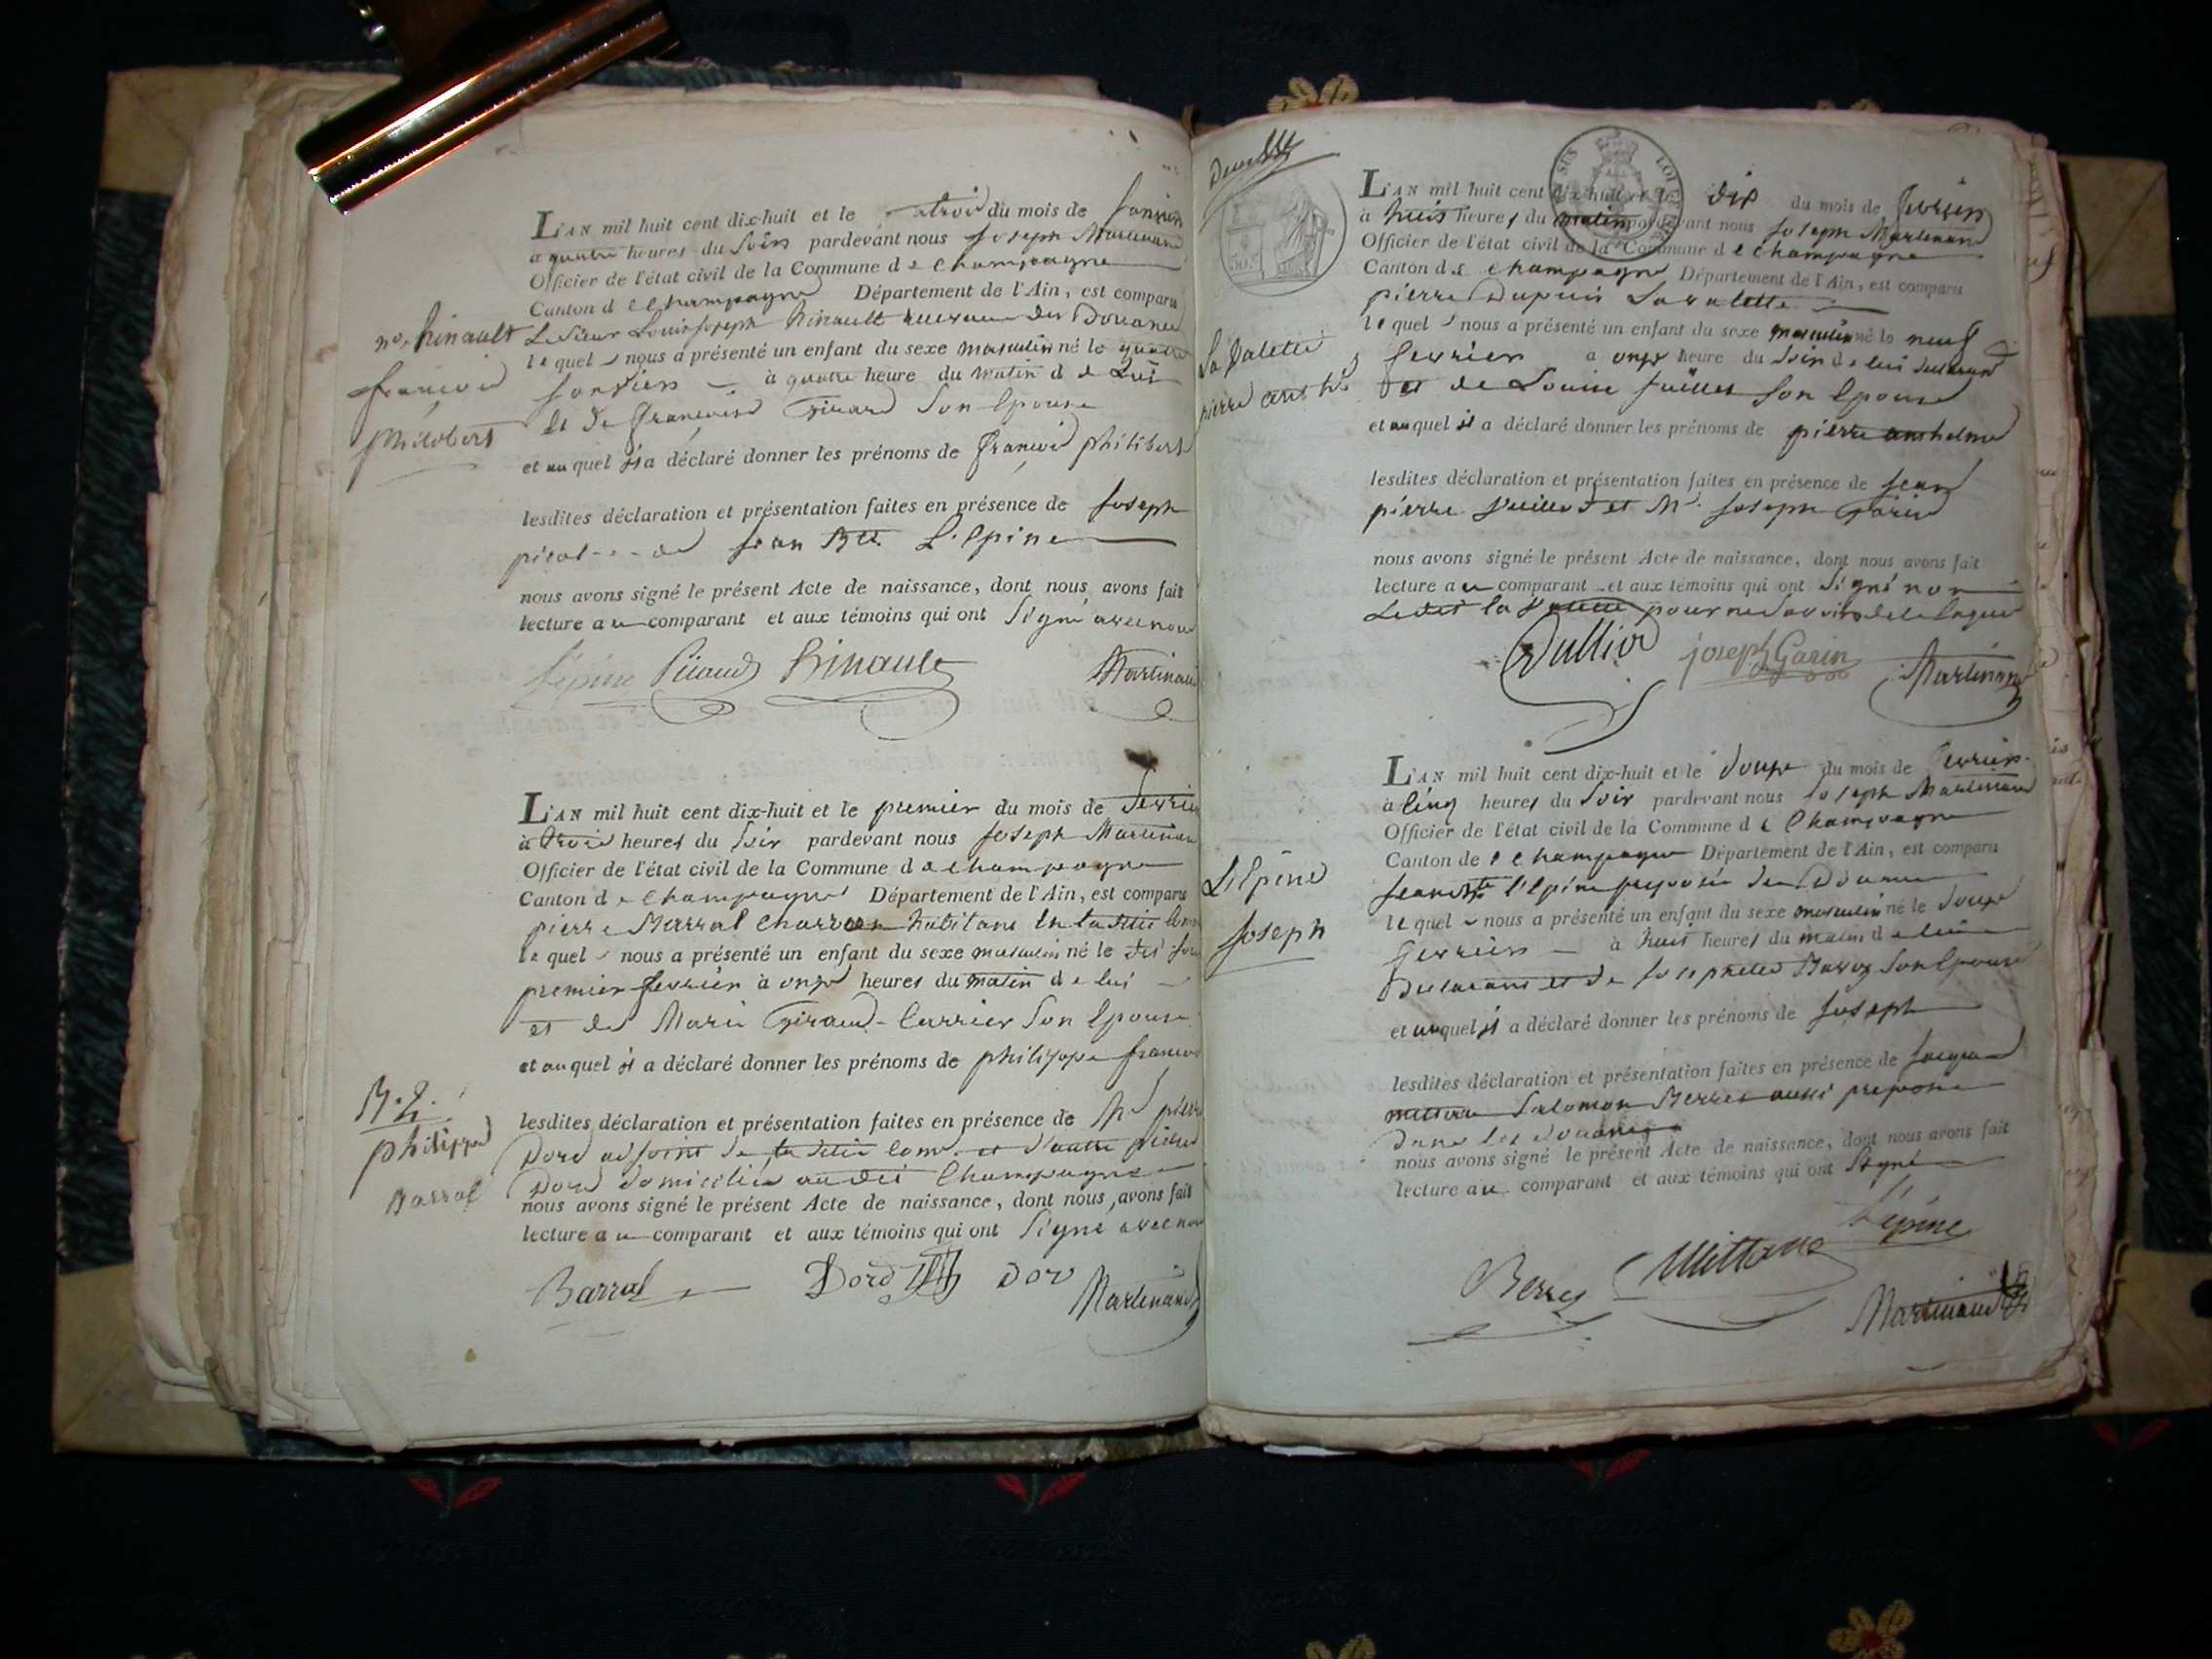 L'AN mil huit cent dix-huit et le trois du mois de janvier
à quatre heures du Soir pardevant nous joseph Martinand
Officier de l'état civil de la Commune de Champagne
Canton de Champagne Département de l'Ain, est comparu
Le Sieur Louis joseph hinault des Douanes
lequel nous a présenté un enfant du sexe masculin né le
janvier à quatre heure du matin de Lui
et de françoise Girard Son Epouse
et auquel il a déclaré donner les prénoms de françois philibert
lesdites déclaration et présentation faites en présence de joseph
jean Bte L'Epine
nous avons signé le présent Acte de naissance, dont nous avons fait
lecture au comparant et aux témoins qui ont Signé avec nous
Lépine Picaud hinault Martinand
hinault
françois
philibert
L'AN mil huit cent dix-huit et le premier du mois de fevrier
à trois heures du Soir pardevant nous joseph Martinand
Officier de l'état civil de la Commune de champagne
Canton de Champagne Département de l'Ain, est comparu
pierre Barral charron habitant en
lequel nous a présenté un enfant du sexe masculin né le
premier fevrier à onze heures du matin de lui
et de Marie Giraud-Currier Son Epouse
et auquel il a déclaré donner les prénoms de philippe françois
lesdites déclaration et présentation faites en présence de pierre
Dord adjoint de et d'autre pierre
Dord domicilié audit Champagne
nous avons signé le présent Acte de naissance, dont nous avons fait
lecture au comparant et aux témoins qui ont Signé avec nous
Barral Dord Dord Martinand
philippe
Barral
L'AN mil huit cent dix-huit et le dix du mois de fevrier
à huit heures du matin pardevant nous joseph Martinand
Officier de l'état civil de la Commune de Champagne
Canton de Champagne Département de l'Ain, est comparu
pierre Dupuis Lavalette
lequel nous a présenté un enfant du sexe masculin né le neuf
fevrier à onze heure du Soir de lui declarant
et de Louise Son Epouse
et auquel il a déclaré donner les prénoms de pierre anthelme
lesdites déclaration et présentation faites en présence de jean
pierre et Mr. joseph Garin
nous avons signé le présent Acte de naissance, dont nous avons fait
lecture au comparant et aux témoins qui ont Signé non
Ledit la Valette pour ne Savoir de ce Enquis
joseph Garin Martinand
La Valette
pierre anthe
L'AN mil huit cent dix-huit et le douze du mois de fevrier
à Cinq heures du Soir pardevant nous joseph Martinand
Officier de l'état civil de la Commune de Champagne
Canton de Champagne Département de l'Ain, est comparu
jean Bte l'Epine preposé des Douanes
lequel nous a présenté un enfant du sexe masculin né le douze
fevrier à huit heures du matin de lui
Declarant et de josephte Son Epouse
et auquel il a déclaré donner les prénoms de joseph
lesdites déclaration et présentation faites en présence de jacques
Salomon Berrez aussi preposé
dans les douanes
nous avons signé le présent Acte de naissance, dont nous avons fait
lecture au comparant et aux témoins qui ont Signé
Lépine
Berrez Martinand
L'Epine
joseph